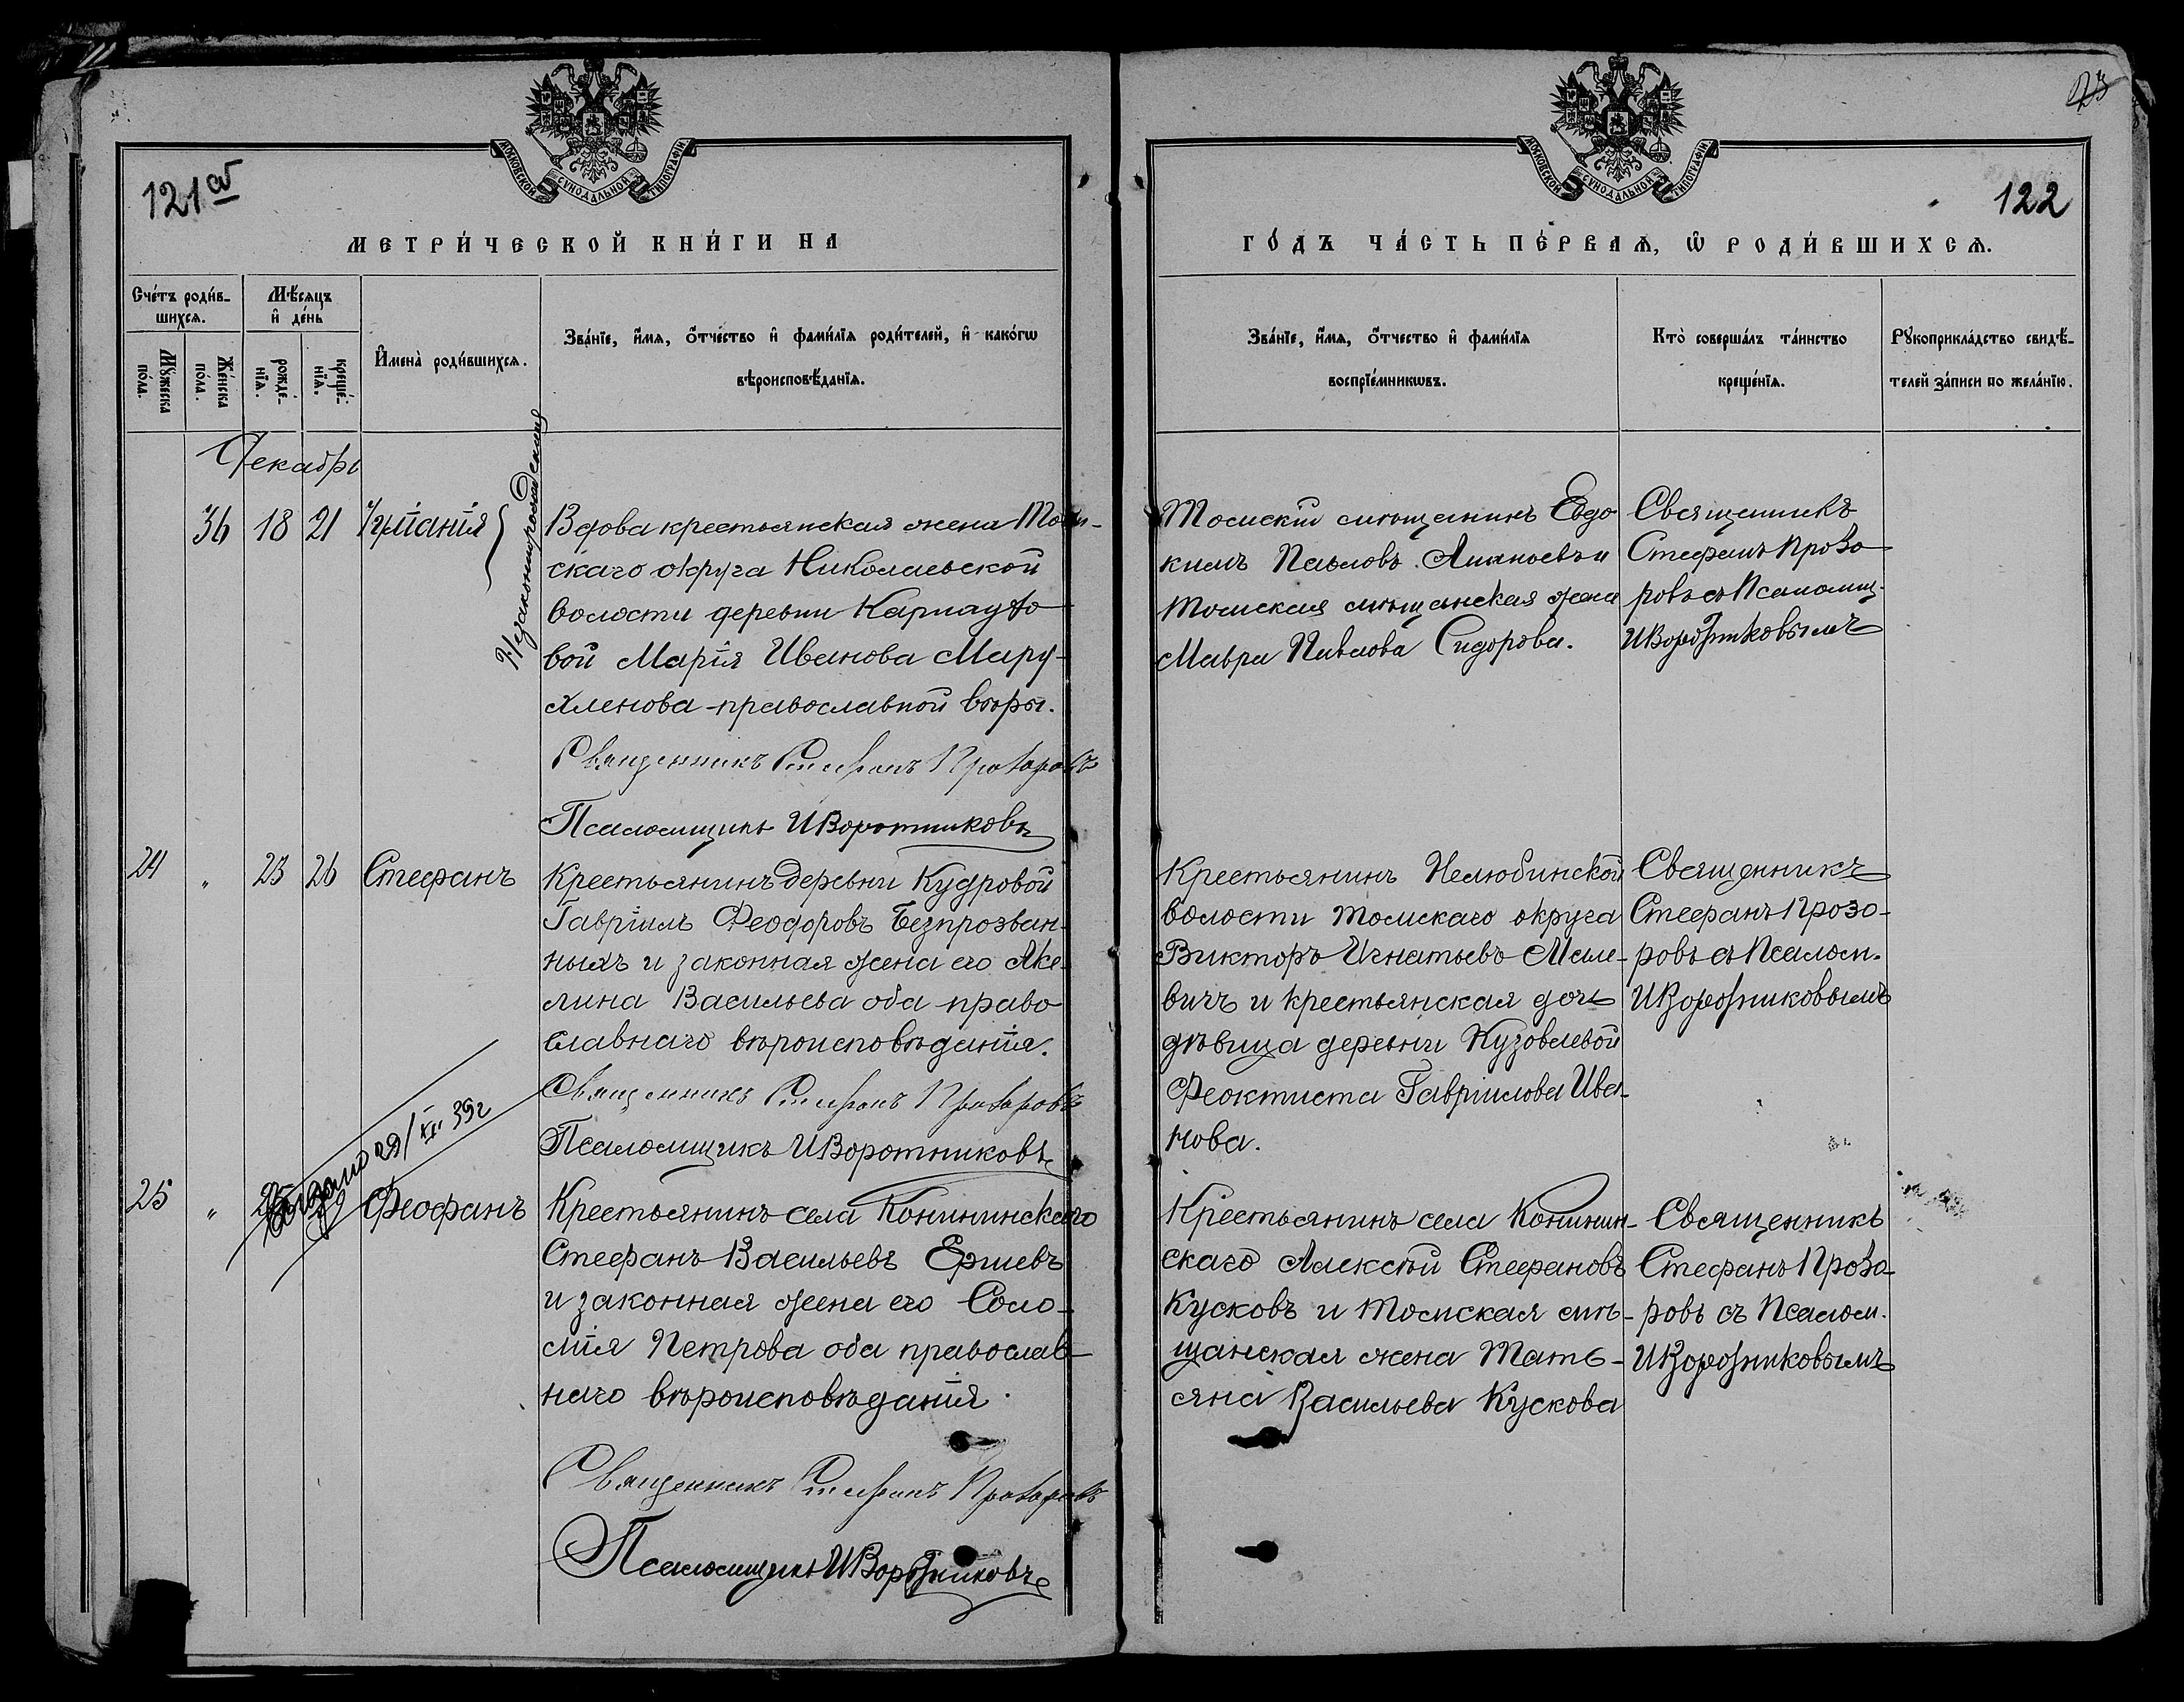 121 об
МОСКОВСКОЙ СѴНОДАЛЬНОЙ ТИПОГРАФІИ
МЕТРИ́ЧЕСКОЙ КНИ́ГИ НА
Сче́тъ роди́в-
шихсѧ.
Мѣ́сѧцъ
и҆ де́нь
Мꙋ́жеска
по́ла.
Же́нска
по́ла.
рожде́-
нїѧ.
креще́-
нїѧ.
И҆мена̀ роди́вшихсѧ.
Зва́нїе, и҆́мѧ, ѻ҆́тчество и҆ фами́лїѧ роди́телей, и҆ како́гѡ
вѣроисповѣ́данїѧ.
Декабрь
36 18 21
Незаконнорожденная
Вдова крестьянская жена Том-
скаго округа Николаевской
волости деревни
вой Марія Иванова Мару-
хленова православной вѣры.
Священникъ Стефанъ Прозоровъ
Псаломщикъ И Воротниковъ
24 „ 23 26 Стефанъ
Крестьянинъ деревни Кудровой
Гавріилъ Феодоровъ Безпрозван-
ныхъ и законная жена его Аке-
лина Васильева оба право
славнаго вѣроисповѣданія.
Священникъ Стефанъ Прозоровъ
Псаломщикъ И Воротниковъ
Выдано 29/XII 39г
25 „ Феофанъ
Крестьянинъ села Конининскаго
Стефанъ Васильевъ Ершевъ
и законная жена его Соло-
мія Петрова оба православ-
наго вѣроисповѣданія.
Священникъ Стефанъ Прозоровъ
Псаломщикъ И Воротниковъ
122
МОСКОВСКОЙ СѴНОДАЛЬНОЙ ТИПОГРАФІИ
ГО́ДЪ ЧА́СТЬ ПЕ́РВАѦ, Ѡ҆ РОДИ́ВШИХСѦ.
Зва́нїе, и҆́мѧ, ѻ҆́тчество и҆ фами́лїѧ
воспрїе́мникѡвъ.
Кто̀ соверша́лъ та́инство
креще́нїѧ.
Рꙋкоприкла́дство свидѣ́-
телей за́писи по жела́нїю.
Томскій мѣщанинъ Евдо
кимъ Павловъ Ананьевъ и
Томская мѣщанская жена
Мавра Павлова Сидорова.
Священникъ
Стефанъ Прозо
ровъ съ Псаломщ.
И Воротниковымъ
Крестьянинъ Нелюбинской
волости Томскаго округа
Викторъ Игнатьевъ Мале-
вичъ и крестьянская дочь
дѣвица деревни Кузовлевой
Феоктиста Гавріилова Ива-
нова.
Священникъ
Стефанъ Прозо-
ровъ съ Псалом.
И Воротниковымъ
Крестьянинъ села Конинин-
скаго Алексѣй Стефановъ
Кусковъ и Томская мѣ-
щанская жена Тать-
яна Васильева Кускова
Священникъ
Стефанъ Прозо-
ровъ съ Псалом.
И Воротниковымъ